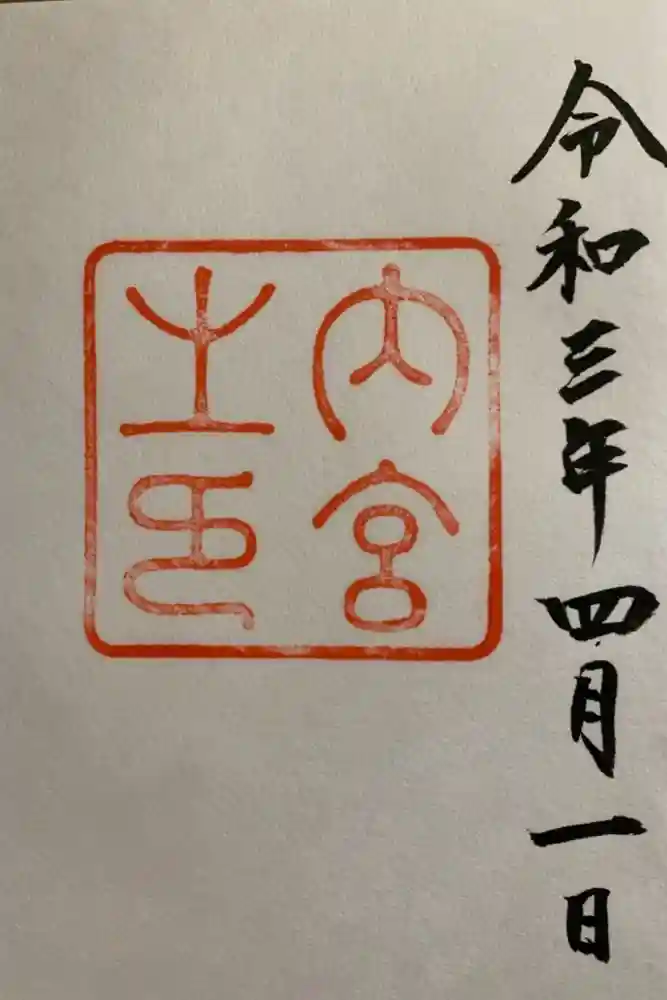 令和三年四月一日
内宮
之印